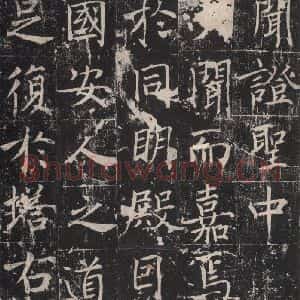 聞證聖中
聞而嘉焉
於同明殿
國安人之道
復於塔右
Shufawang.Cn